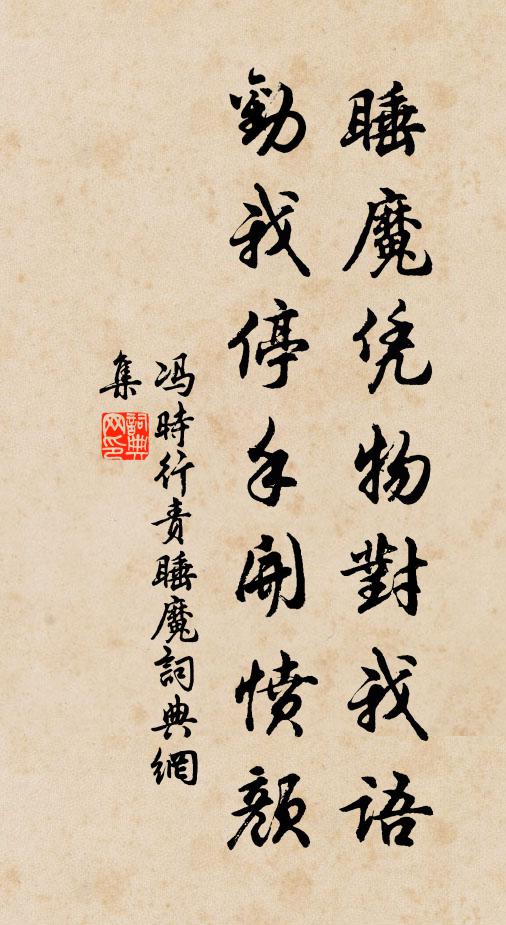 睡魔凭物對我語
勸我停手開憤顏
冯時行責睡魔詞典網
集
詞典网印